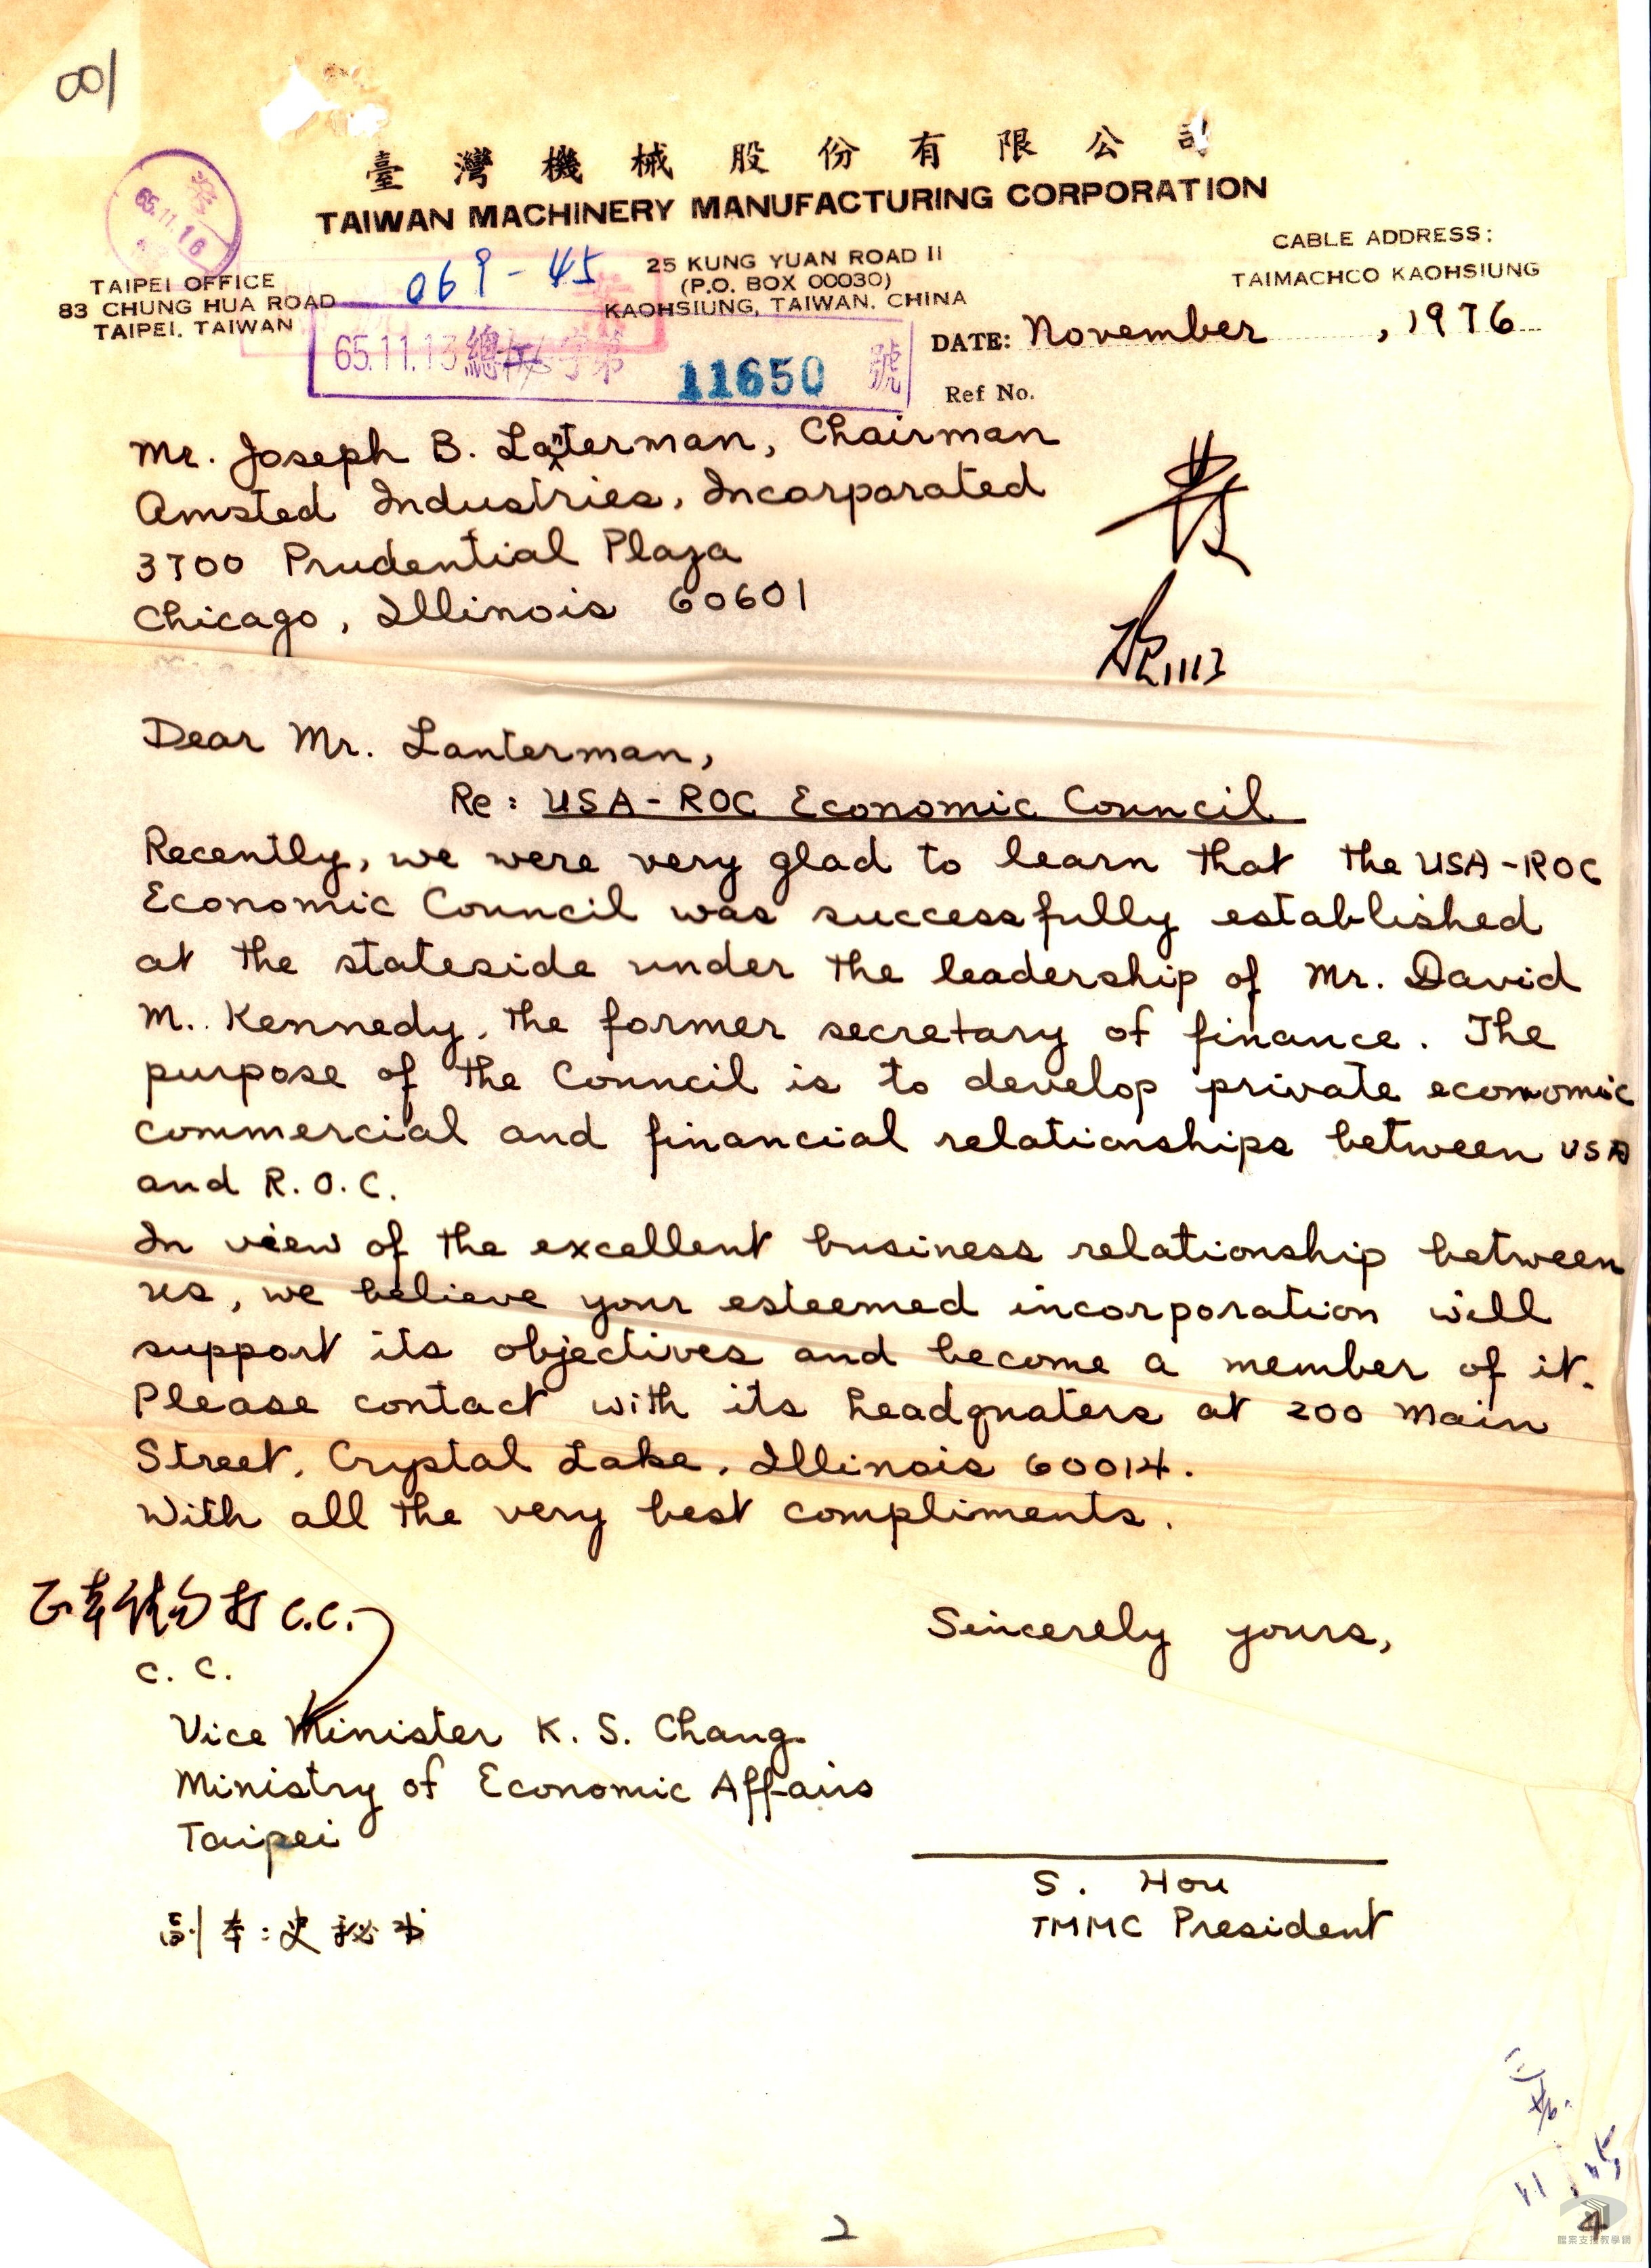 001
臺灣機械股份有限公司
TAIWAN MACHINERY MANUFACTURING CORPORATION
65.11.16
TAIPEI OFFICE
83 CHUNG HUA ROAD
TAIPEI, TAIWAN
069-45
25 KUNG YUAN ROAD II
(P.O. BOX 00030)
KAOHSIUNG, TAIWAN. CHINA
CABLE ADDRESS:
TAIMACHCO KAOHSIUNG
DATE: November , 1976
65.11.13 總 字第 11650 號
Ref No.
Mr. Joseph B. Lanterman, Chairman
Amsted Industries, Incorporated
3700 Prudential Plaza
Chicago, Illinois 60601
1113
Dear Mr. Lanterman,
Re: USA-ROC Economic Council
Recently, we were very glad to learn that the USA-ROC
Economic Council was successfully established
at the stateside under the leadership of Mr. David
M. Kennedy, the former secretary of finance. The
purpose of the Council is to develop private economic
commercial and financial relationships between USA
and R.O.C.
In view of the excellent business relationship between
us, we believe your esteemed incorporation will
support its objectives and become a member of it.
Please contact with its headquaters at 200 Main
Street, Crystal Lake, Illinois 60014.
With all the very best compliments.
正本請勿打 C.C.
Sincerely yours,
C. C.
Vice Minister K. S. Chang
Ministry of Economic Affairs
Taipei
S. Hou
TMMC President
副本:史秘书
2
4
檔案支援教學網